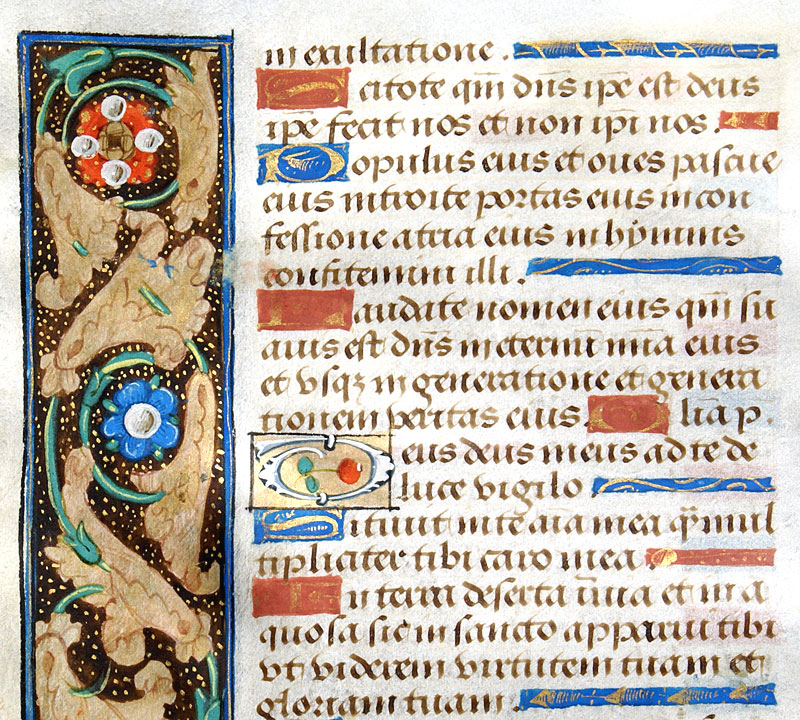 in exultatione.
Scitote qm̄ dn̄s ip̄e est deus
ip̄e fecit nos et non ip̄i nos.
Populus eius et oues pascue
eius introite portas eius in con
fessione atria eius in hymnis
confitemini illi.
Laudate nomen eius qm̄ su
auis est dn̄s in eternū mīa eius
et vsqꝫ in generatione et genera
tionem veritas eius. p̄.
Deus deus meus ad te de
luce vigilo
Sitiuit in te aīa mea q̄ mul
tipliciter tibi caro mea
In terra deserta īuia et in a
quosa sic in sancto apparui tibi
vt viderem virtutem tuam et
gloriam tuam.